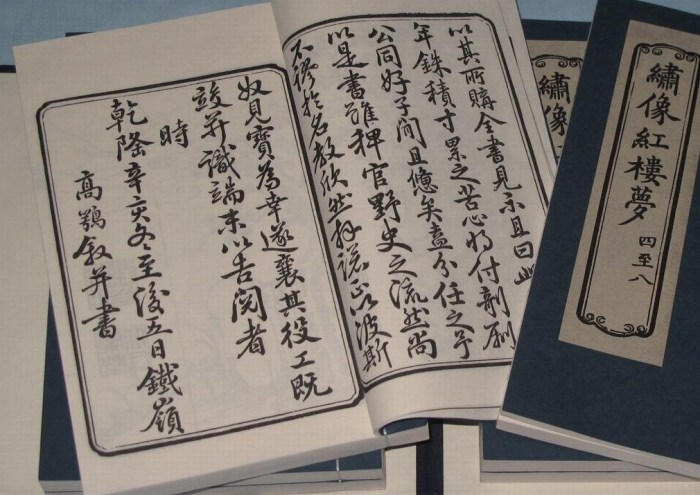 繡像紅樓夢
四至八
繡像
以其所購全書見示且曰此
年銖積寸累之苦心將付剞劂
公同好子閒且憊矣盍分任之予
以是書雖稗官野史之流然尚
不謬於名教欣然拜諾正以波斯
奴見寶為幸遂襄其役工既
竣并識端末以告閱者
時
乾隆辛亥冬至後五日鐵嶺
高鶚敘并書